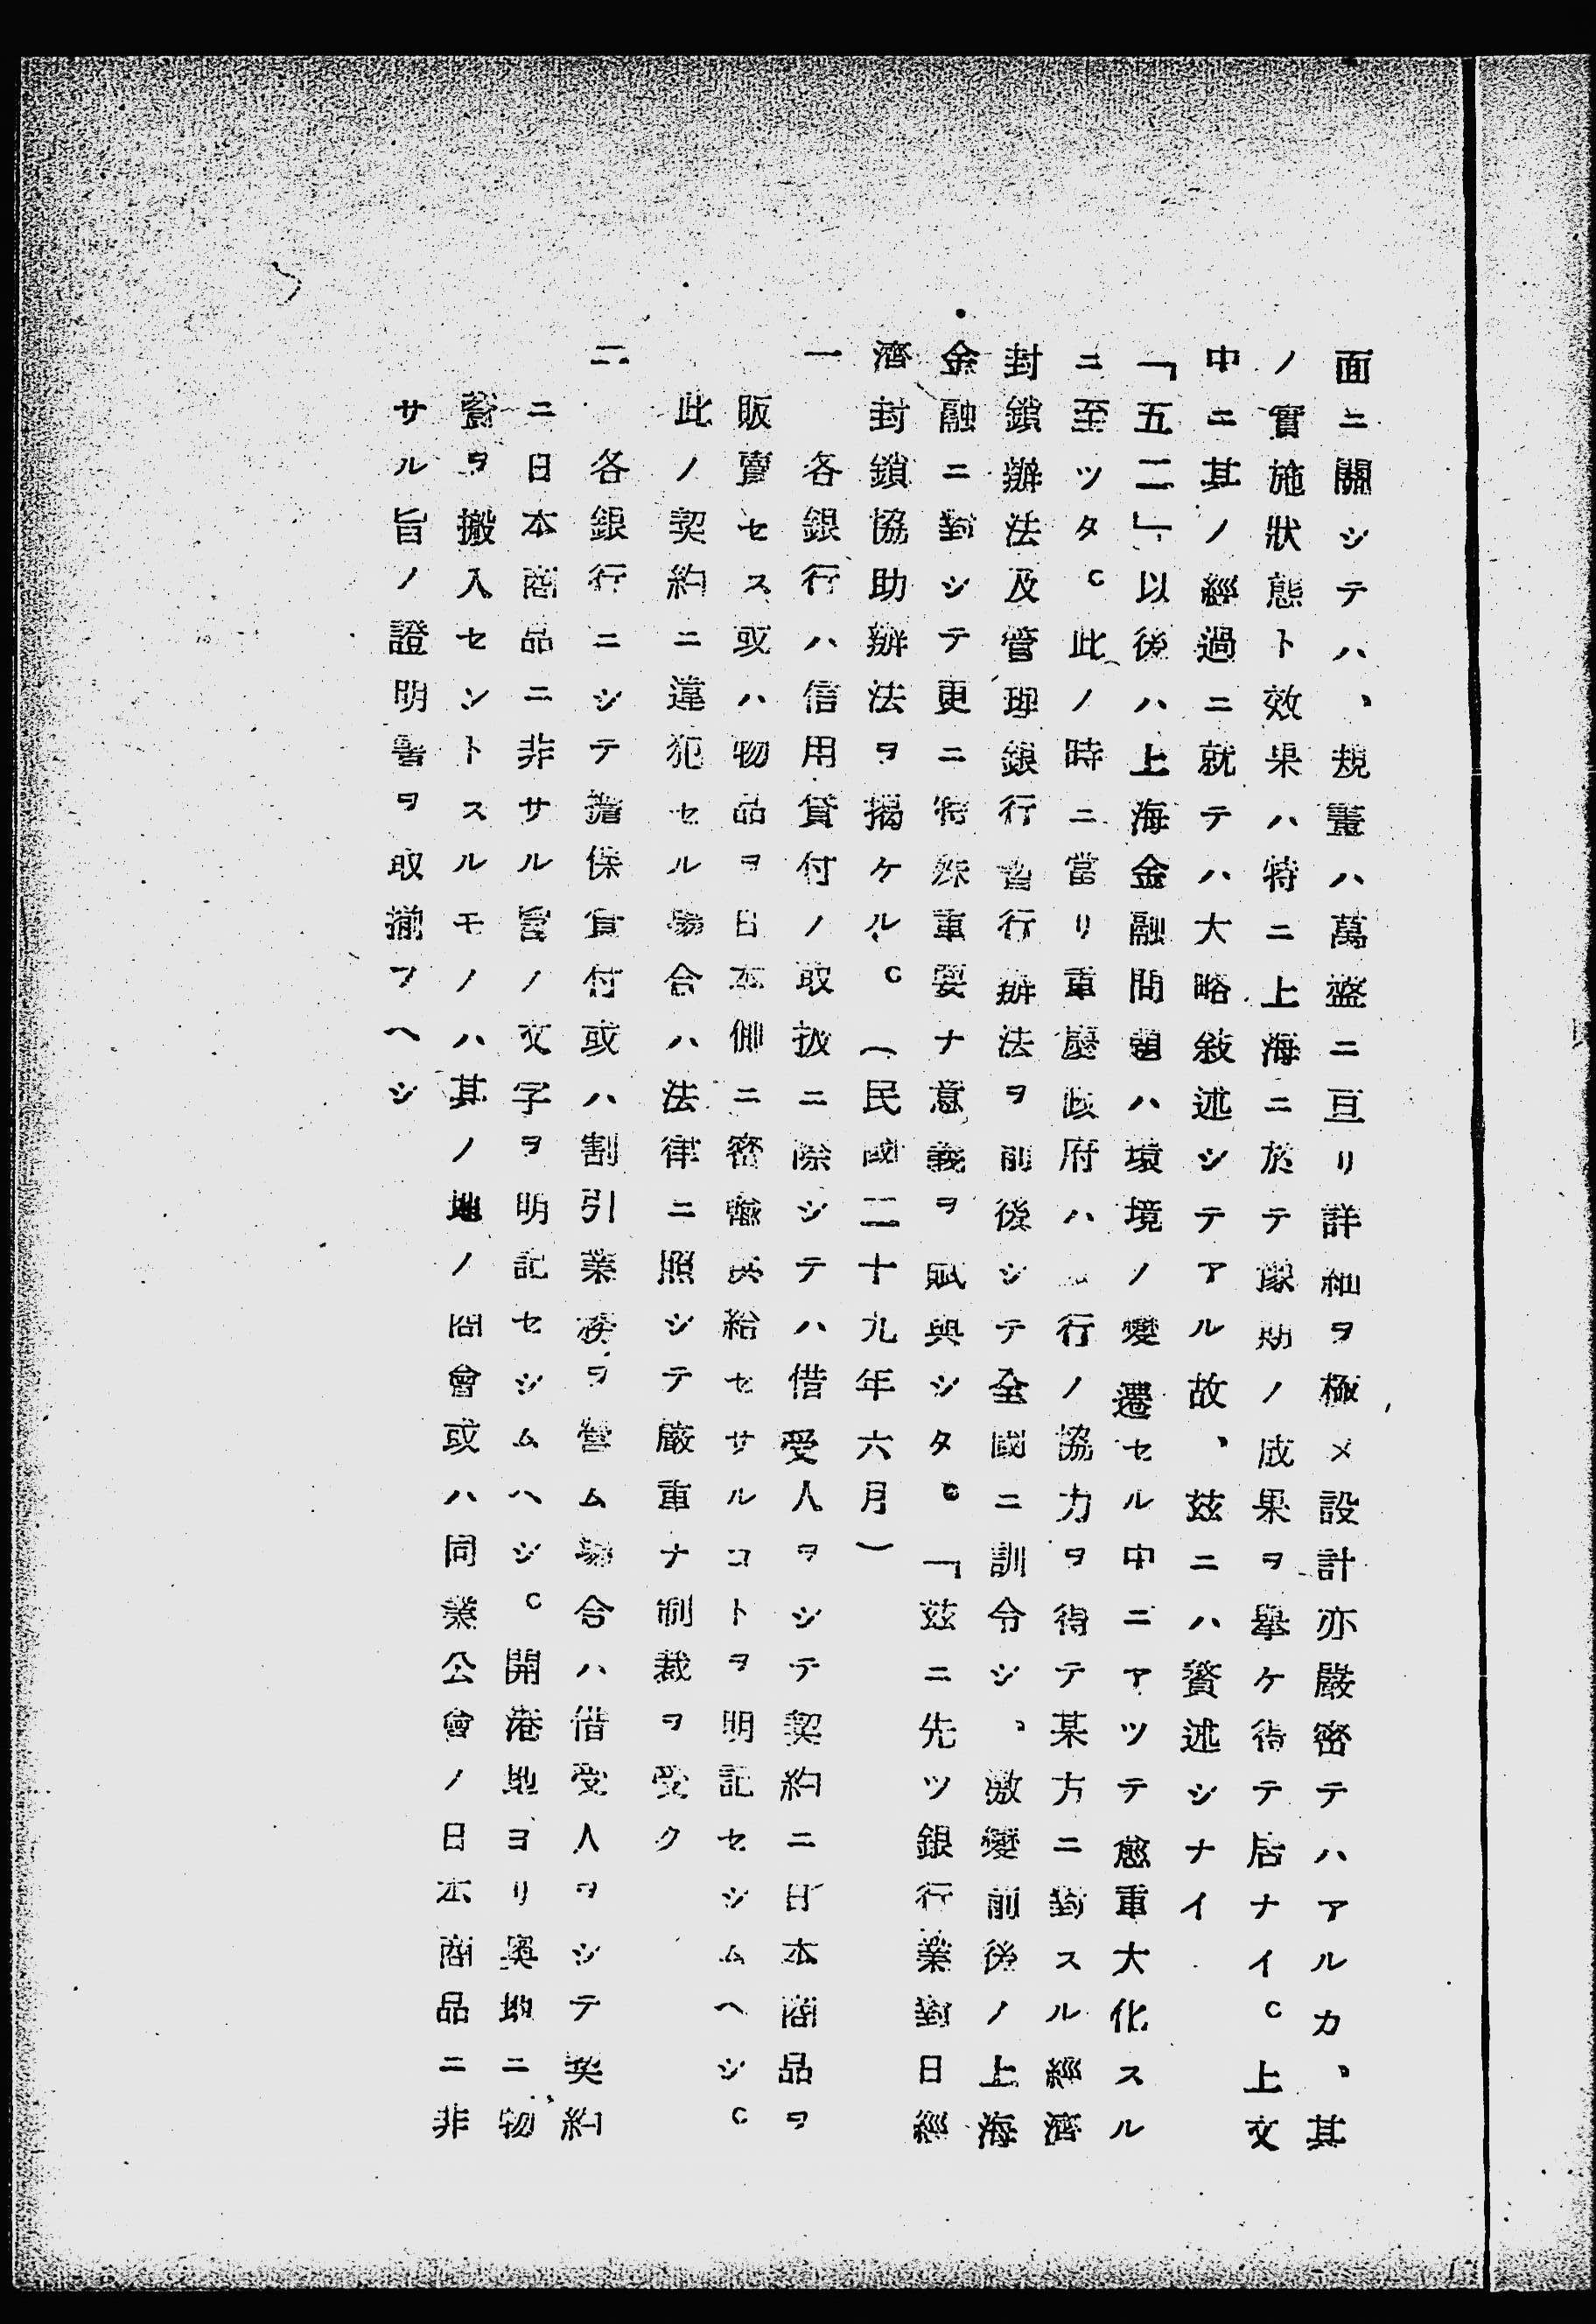 面ニ關シテハ、規畫ハ萬盤ニ亘リ詳細ヲ極メ設計亦嚴密テハアルカ、其
ノ實施狀態ト效果ハ特ニ上海ニ於テ豫期ノ成果ヲ擧ケ得テ居ナイ。上文
中ニ其ノ經過ニ就テハ大略敍述シテアル故、玆ニハ贅述シナイ
「五二」以後ハ上海金融問題ハ環境ノ變遷セル中ニアツテ愈重大化スル
ニ至ツタ。此ノ時ニ當リ重慶政府ハ行ノ協力ヲ得テ某方ニ對スル經濟
封鎖辦法及管理銀行暫行辦法ヲ前後シテ全國ニ訓令シ、激變前後ノ上海
金融ニ對シテ更ニ特殊重要ナ意義ヲ賦與シタ。「玆ニ先ツ銀行業對日經
濟封鎖協助辦法ヲ揭ケル。(民國二十九年六月)
一 各銀行ハ信用貸付ノ取扱ニ際シテハ借受人ヲシテ契約ニ日本商品ヲ
販賣セス或ハ物品ヲ日本側ニ密輸供給セサルコトヲ明記セシムヘシ。
此ノ契約ニ違犯セル場合ハ法律ニ照シテ嚴重ナ制裁ヲ受ク
二 各銀行ニシテ擔保貸付或ハ割引業務ヲ營ム場合ハ借受人ヲシテ契約
ニ日本商品ニ非サル旨ノ文字ヲ明記セシムヘシ。開港地ヨリ奧地ニ物
資ヲ搬入セントスルモノハ其ノ地ノ商會或ハ同業公會ノ日本商品ニ非
サル旨ノ證明書ヲ取揃フヘシ